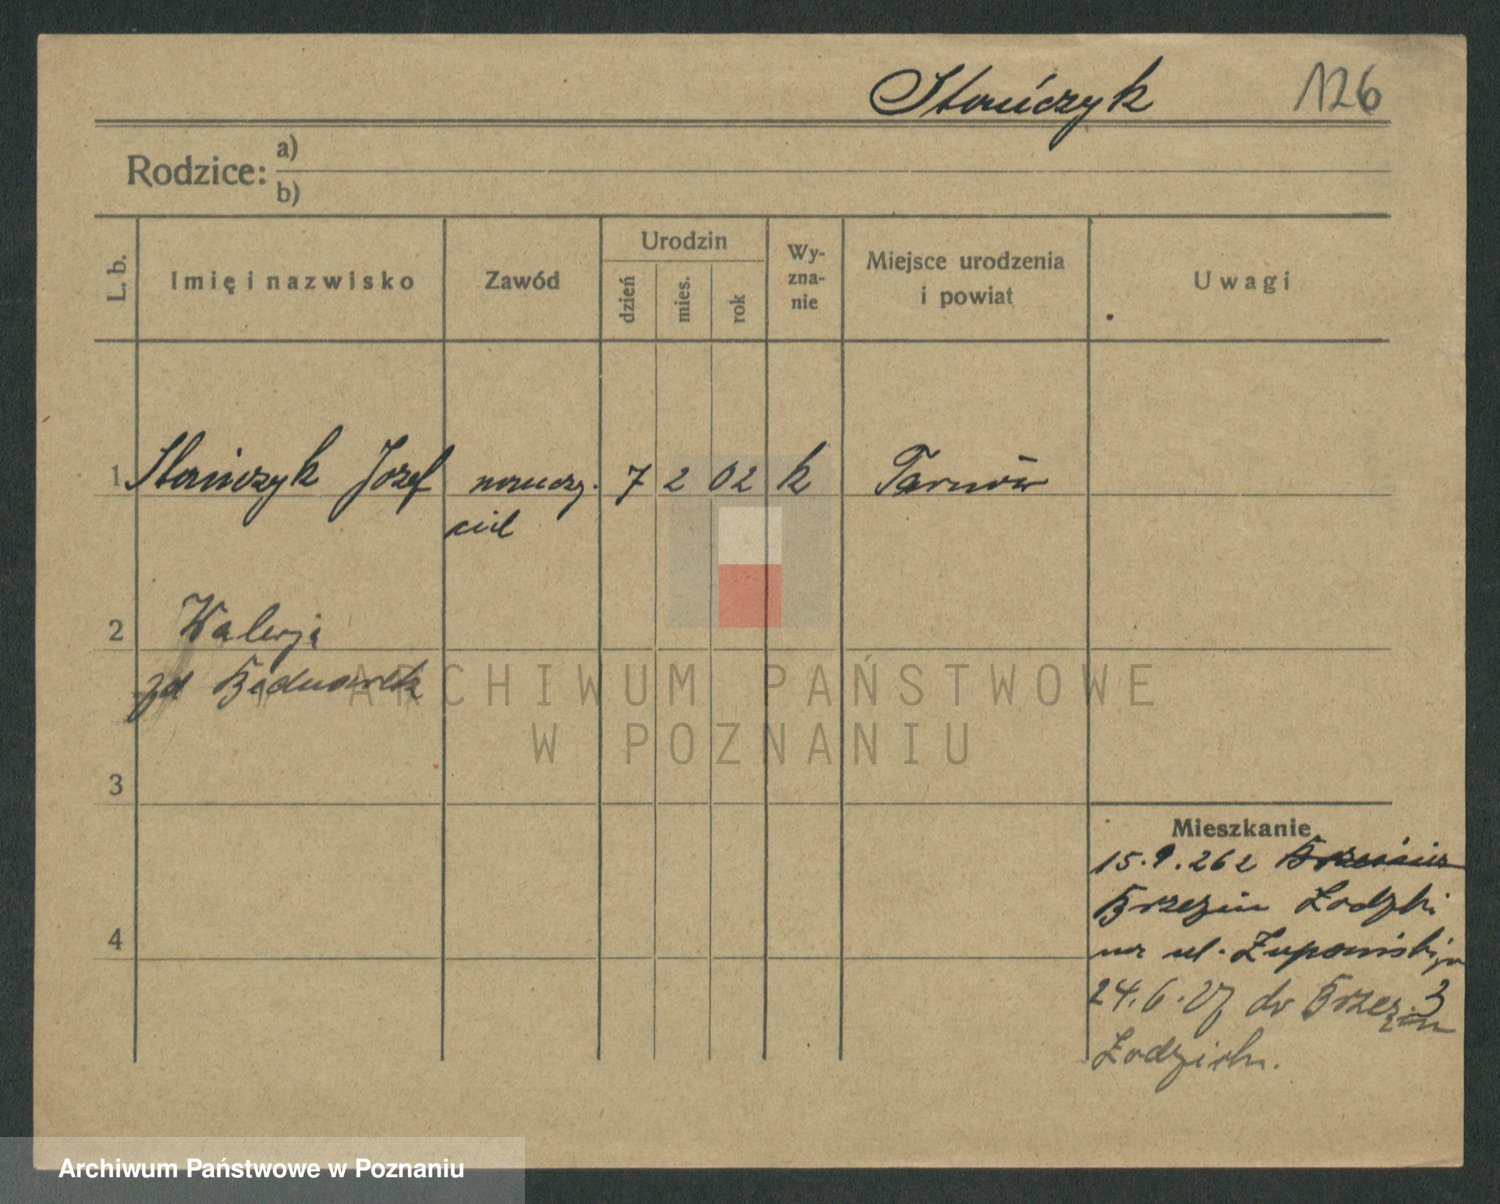 Stańczyk 126
Rodzice: a)
b)
L. b.
Imię i nazwisko
Zawód
Urodzin
dzień
mies.
rok
Wy-
zna-
nie
Miejsce urodzenia
i powiat
Uwagi
1 Stańczyk Józef nauczy- 7 2 02 k Tarnów
ciel
2 Walerja
zd Bednarek
3
4
Mieszkanie
15.9.26 z
Brzezin Łodzki
na ul. Łupański 3
24.6.27 do Brzezin
Łodzkich.
ARCHIWUM PAŃSTWOWE
W POZNANIU
Archiwum Państwowe w Poznaniu